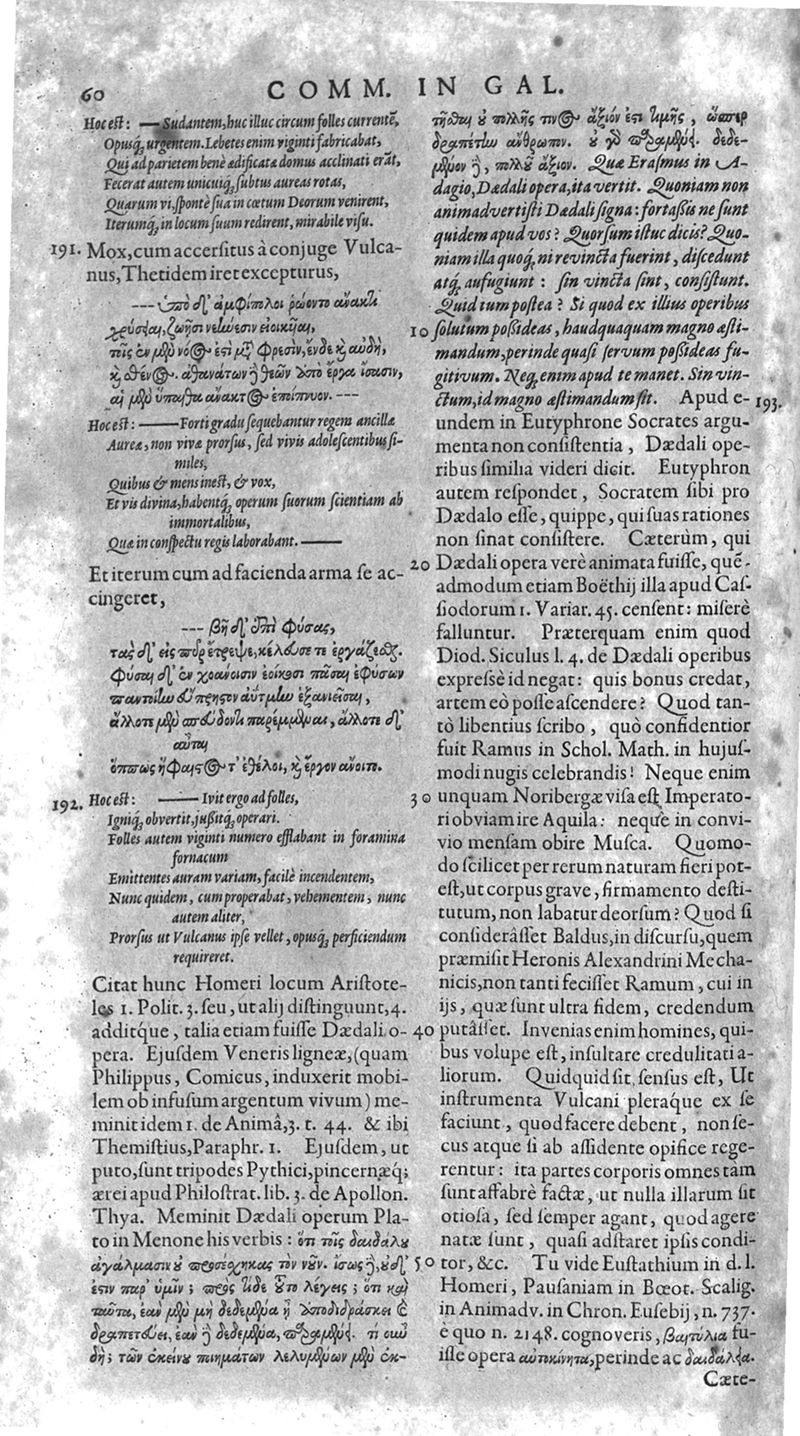 60
COMM. IN GAL.
Hoc est: — Sudantem, huc illuc circum folles currentē,
Opusq́; urgentem. Lebetes enim viginti fabricabat,
Qui ad parietem benè ædificatæ domus acclinati erāt,
Fecerat autem unicuiq́; subtus aureas rotas,
Quarum vi, spontè sua in cœtum Deorum venirent,
Iterumq́; in locum suum redirent, mirabile visu.
191. Mox, cum accersitus à conjuge Vulca-
nus, Thetidem iret excepturus,
--- ὑπὸ δ' ἀμφίπολοι ῥώοντο ἄνακτι
χρύσειαι, ζωῇσι νεήνισιν εἰοικῆαι,
τῆς ἐν μὲν νόος ἐστὶ μετὰ φρεσὶν, ἔνδε καὶ αὐδὴ,
καὶ σθένος. ἀθανάτων δὲ θεῶν ἄπο ἔργα ἴσασιν,
αἱ μὲν ὕπαιθα ἄνακτος ἐποίπνυον. ---
Hoc est: — Forti gradu sequebantur regem ancillæ
Aureæ, non vivæ prorsus, sed vivis adolescentibus si-
miles,
Quibus & mens inest, & vox,
Et vis divina, habentq́; operum suorum scientiam ab
immortalibus,
Quæ in conspectu regis laborabant. —
Et iterum cum ad facienda arma se ac-
cingeret,
--- βῆ δ' ἐπὶ φύσας,
τὰς δ' εἰς πῦρ ἔτρεψε, κέλευσε τε ἐργάζεσθαι.
Φῦσαι δ' ἐν χοάνοισιν ἐείκοσι πᾶσαι ἐφύσων
παντοίην εὔπρηστον ἀϋτμὴν ἐξανιεῖσαι,
ἄλλοτε μὲν σπεύδοντι παρέμμεναι, ἄλλοτε δ'
αὖτε
ὅππως Ἥφαιστος τ' ἐθέλοι, καὶ ἔργον ἄνοιτο.
192. Hoc est: — Ivit ergo ad folles,
Igniq́; obvertit, jußitq́; operari.
Folles autem viginti numero efflabant in foramina
fornacum
Emittentes auram variam, facilè incendentem,
Nunc quidem, cum properabat, vehementem, nunc
autem aliter,
Prorsus ut Vulcanus ipse vellet, opusq́; perficiendum
requireret.
Citat hunc Homeri locum Aristote-
les 1. Polit. 3. seu, ut alij distinguunt, 4.
additque, talia etiam fuisse Dædali o-
pera. Ejusdem Veneris ligneæ, (quam
Philippus, Comicus, induxerit mobi-
lem ob infusum argentum vivum) me-
minit idem 1. de Animâ, 3. t. 44. & ibi
Themistius, Paraphr. 1. Ejusdem, ut
puto, sunt tripodes Pythici, pincernæq́;
ærei apud Philostrat. lib. 3. de Apollon.
Thya. Meminit Dædali operum Pla-
to in Menone his verbis: ὅτι τοῖς δαιδάλου
ἀγάλμασιν οὐ προσέσχηκας τὸν νοῦν. ἴσως δὲ, οὐδ'
ἔστιν παρ' ὑμῖν; πρὸς τί δὲ τοῦτο λέγεις; ὅτι καὶ
ταῦτα, ἐὰν μὲν μὴ δεδεμένα ᾖ ἀποδιδράσκει καὶ
δραπετεύει, ἐὰν δὲ δεδεμένα, παραμένει. τί οὖν
δή; τῶν ἐκείνου ποιημάτων λελυμένων μὲν ἐκ-
τῆσθαι οὐ πολλῆς τινος ἄξιόν ἐστι τιμῆς, ὥσπερ
δραπέτην ἄνθρωπον. οὐ γὰρ παραμένει. δεδε-
μένον δὲ, πολλοῦ ἄξιον. Quæ Erasmus in A-
dagio, Dædali opera, ita vertit. Quoniam non
animadvertisti Dædali signa: fortaßis ne sunt
quidem apud vos? Quorsum istuc dicis? Quo-
niam illa quoq́, ni revincta fuerint, discedunt
atq́, aufugiunt: sin vincta sint, consistunt.
Quid tum postea? Si quod ex illius operibus
10 solutum poßideas, haudquaquam magno æsti-
mandum, perinde quasi servum poßideas fu-
gitivum. Neq́, enim apud te manet. Sin vin-
ctum, id magno æstimandum sit. Apud e- 193.
undem in Eutyphrone Socrates argu-
menta non consistentia, Dædali ope-
ribus similia videri dicit. Eutyphron
autem respondet, Socratem sibi pro
Dædalo esse, quippe, qui suas rationes
non sinat consistere. Cæterùm, qui
20 Dædali opera verè animata fuisse, quē-
admodum etiam Boëthij illa apud Cas-
siodorum 1. Variar. 45. censent: miserè
falluntur. Præterquam enim quod
Diod. Siculus l. 4. de Dædali operibus
expressè id negat: quis bonus credat,
artem eò posse ascendere? Quod tan-
tò libentius scribo, quò confidentior
fuit Ramus in Schol. Math. in hujus-
modi nugis celebrandis! Neque enim
30 unquam Noribergæ visa est Imperato-
ri obviam ire Aquila: neque in convi-
vio mensam obire Musca. Quomo-
do scilicet per rerum naturam fieri pot-
est, ut corpus grave, firmamento desti-
tutum, non labatur deorsum? Quod si
considerâsset Baldus, in discursu, quem
præmisit Heronis Alexandrini Mecha-
nicis, non tanti fecisset Ramum, cui in
ijs, quæ sunt ultra fidem, credendum
40 putâsset. Invenias enim homines, qui-
bus volupe est, insultare credulitati a-
liorum. Quidquid sit, sensus est, Ut
instrumenta Vulcani pleraque ex se
faciunt, quod facere debent, non se-
cus atque si ab assidente opifice rege-
rentur: ita partes corporis omnes tàm
sunt affabrè factæ, ut nulla illarum sit
otiosa, sed semper agant, quod agere
natæ sunt, quasi adstaret ipsis condi-
50 tor, &c. Tu vide Eustathium in d. l.
Homeri, Pausaniam in Bœot. Scalig.
in Animadv. in Chron. Eusebij, n. 737.
è quo n. 2148. cognoveris, βαιτύλια fu-
isse opera αὐτοκίνητα, perinde ac δαιδάλεια.
Cæte-